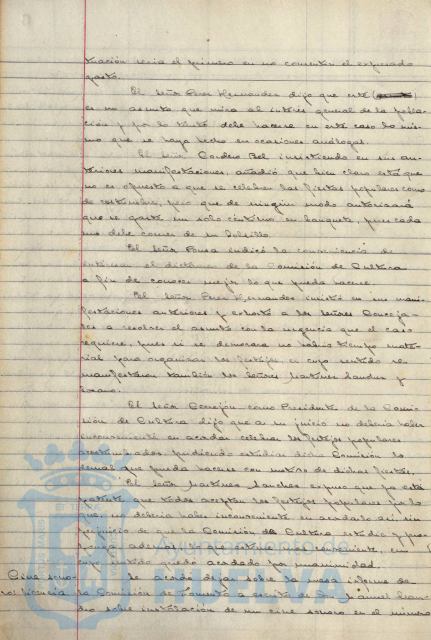 tración sería el primero en no consentir el expresado
gasto.
El Señor Perez Hernandez dijo que este
es un asunto que mira al interés general de la pobla-
ción y por lo tanto debe hacerse en este caso lo mis-
mo que se haya hecho en ocasiones análogas.
El Señor Cordero Bel insistiendo en sus an-
teriores manifestaciones, añadió que bien claro está que
no es opuesto a que se celebren las fiestas populares como
de costumbre, pero que de ningun modo autorizará
que se gaste un solo céntimo en banquete, pues cada
uno debe comer de su bolsillo.
El Señor Ponsa indicó la conveniencia de
el dictamen de la Comisión de Cultura
a fin de conocer mejor lo que pueda hacerse.
El Señor Perez Hernandez insistió en sus mani-
festaciones anteriores y exhortó a los Señores Conceja-
les a resolver el asunto con la urgencia que el caso
requiere, pues si se demorara no habría tiempo mate-
rial para organizar los festejos, en cuyo sentido se
manifestaron también los Señores Martinez Sanchez y
El Señor Cornejo, como Presidente de la Comi-
sión de Cultura dijo que a su juicio no debería haber
inconveniente en acordar celebrar los festejos populares
acostumbrados pudiendo estudiar dicha Comisión lo
demás que pueda hacerse con motivo de dichas fiestas.
El Señor Martinez Sanchez expuso que ya está
patente que todos aceptan los festejos populares por lo
que, no debería haber inconveniente en acordarlo asi, sin
perjuicio de que la Comisión de Cultura estudie y pro-
ponga además lo que estime conveniente, en
cuyo sentido quedó acordado por unanimidad.
Cine sono-
ro licencia
Se acordó dejar sobre la mesa informe de
la Comisión de Fomento a escrito de Don Manuel
sobre instalación de un cine sonoro en el
Ayuntamiento de
HUELVA